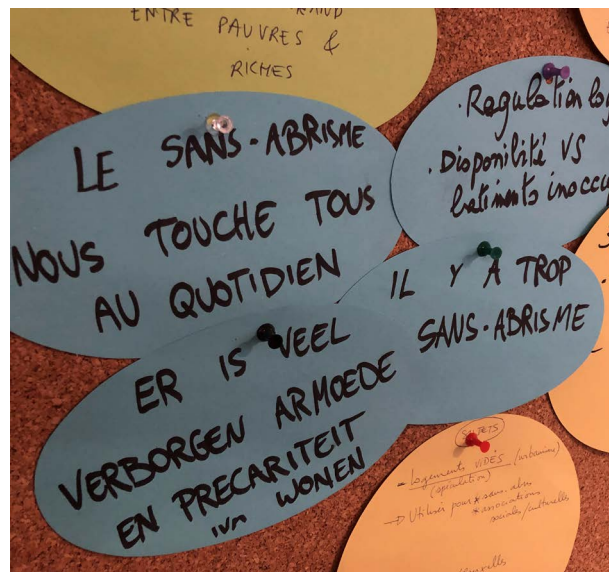 ENTRE
PAUVRES &
RICHES
LE SANS-ABRISME
NOUS TOUCHE TOUS
AU QUOTIDIEN
. Regulation log
. Disponibilité VS
batiments inoccu
IL Y A TROP
SANS-ABRISME
ER IS VEEL
VERBORGEN ARMOEDE
EN PRECARITEIT
ivm WONEN
- Logements VIDÉS (urbanisme)
(spéculation)
-> Utiliser pour * sans abri
* associations
sociales/culturelles